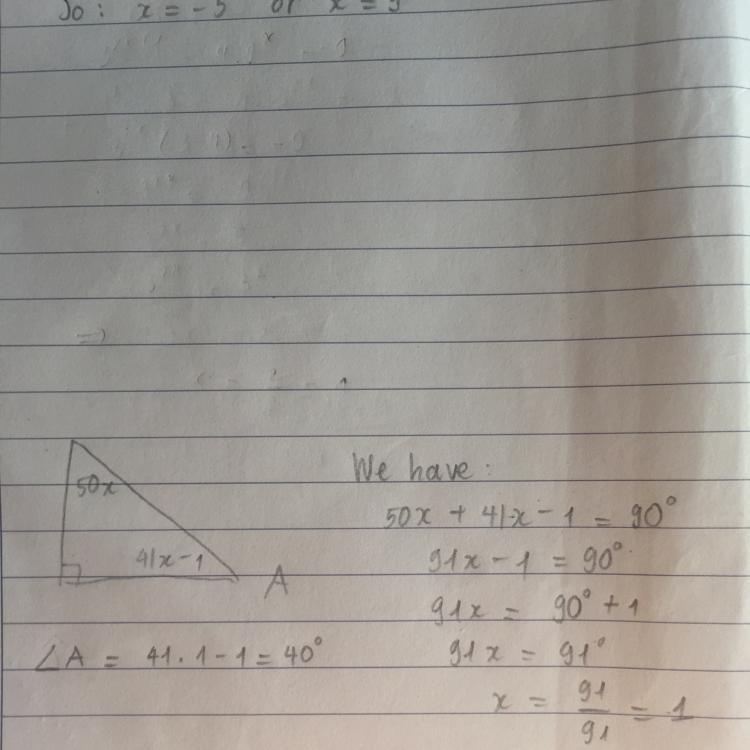 So: x = -5 or x = 5
50x
41x-1
A
∠A = 41.1-1 = 40°
We have:
50x + 41x - 1 = 90°
91x - 1 = 90°
91x = 90° + 1
91x = 91°
x = 91/91 = 1